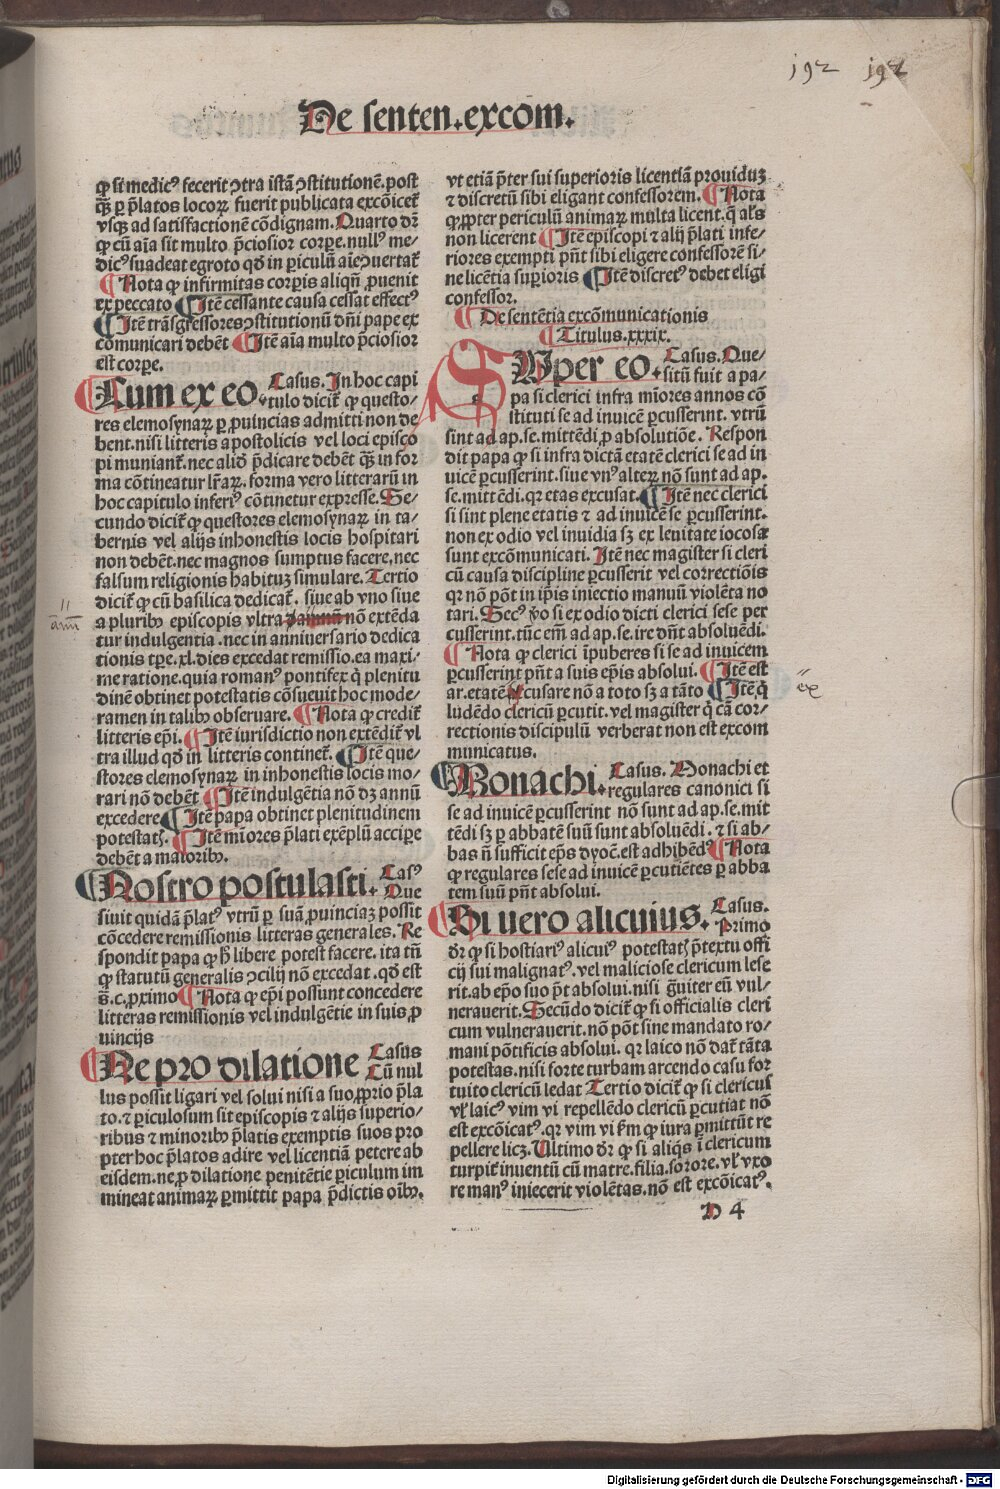 192 192
De senten.excom.
ꝙ si medicꝰ fecerit ↄtra istā ↄstitutionē.post
qȝ̄ ꝑ p̄latos locoꝝ fuerit publicata excōicet̄
vsqꝫ ad satisfactionē cōdignam. Quarto dr̄
ꝙ cū aīa sit multo p̄ciosior corꝑe.nullꝰ me⸗
dicꝰ suadeat egroto qd̄ in ꝑiculū aīe ↄuertat̄
¶ Nota ꝙ infirmitas corꝑis aliqn̄ ꝓuenit
ex peccato ¶ Itē cessante causa cessat effectꝰ
¶ Itē trāsgressores ↄstitutionū dn̄i pape ex
cōmunicari debēt ¶ Itē aīa multo p̄ciosior
est corꝑe.
¶ Cum ex eo. Casus. In hoc capi
tulo dicit̄ ꝙ questo⸗
res elemosynaꝝ ꝑ ꝓuincias admitti non de
bent.nisi litteris apostolicis vel loci episco
pi muniant̄.nec alid̄ p̄dicare debēt qȝ̄ in for
ma cōtineatur lr̄aꝝ. forma vero litterarū in
hoc capitulo inferiꝰ cōtinetur expresse. Se⸗
cundo dicit̄ ꝙ questores elemosynaꝝ in ta⸗
bernis vel alijs inhonestis locis hospitari
non debēt.nec magnos sumptus facere.nec
falsum religionis habituꝫ simulare. Tertio
dicit̄ ꝙ cū basilica dedicat̄. siue ab vno siue
a pluribꝰ episcopis vltra nō extēda
tur indulgentia .nec in anniuersario dedica
tionis tꝑe.xl.dies excedat remissio.ea maxi⸗
me ratione.quia romanꝰ pontifex q̄ plenitu
dinē obtinet potestatis cōsueuit hoc mode⸗
ramen in talibꝰ obseruare. ¶ Nota ꝙ credit̄
litteris ep̄i. ¶ Itē iurisdictio non extēdit̄ vl
tra illud qd̄ in litteris continet̄. ¶ Itē que⸗
stores elemosynaꝝ in inhonestis locis mo⸗
rari nō debēt ¶ Itē indulgētia nō dꝫ annū
excedere ¶ Itē papa obtinet plenitudinem
potestatꝭ. ¶ Itē mīores p̄lati exēplū accipe
debēt a maioribꝰ.
¶ Nostro postulasti. Casꝰ
Que
siuit quidā p̄latꝰ vtrū ꝑ suā ꝓuinciaꝫ possit
cōcedere remissionis litteras generales. Re
spondit papa ꝙ h̄ libere potest facere. ita tn̄
ꝙ statutū generalis ↄcilij nō excedat .qd̄ est
s̄.c.ꝓximo ¶ Nota ꝙ ep̄i possunt concedere
litteras remissionis vel indulgētie in suis ꝓ
uincijs
¶ Ne pro dilatione Casus
Cū nul
lus possit ligari vel solui nisi a suo ꝓprio p̄la
to. ⁊ ꝑiculosum sit episcopis ⁊ alijs superio⸗
ribus ⁊ minoribꝰ p̄latis exemptis suos pro
pter hoc p̄latos adire vel licentiā petere ab
eisdem.ne ꝓ dilatione penitētie ꝑiculum im
mineat animaꝝ ꝑmittit papa p̄dictis oībꝰ.
11
ann̄
vt etiā p̄ter sui superioris licentiā prouiduꝫ
⁊ discretū sibi eligant confessorem. ¶ Nota
ꝙ ꝓpter periculū animaꝝ multa licent.q̄ al̄s
non licerent ¶ Itē episcopi ⁊ alij p̄lati infe⸗
riores exempti pn̄t sibi eligere confessorē si⸗
ne licētia suꝑioris ¶ Itē discretꝰ debet eligi
confessor.
¶ De sentētia excōmunicationis
¶ Titulus.xxxix.
SUper eo. Casus. Que⸗
situ fuit a pa⸗
pa si clerici infra mīores annos cō
stituti se ad inuicē ꝑcusserint. vtrū
sint ad ap.se.mittēdi ꝓ absolutiōe. Respon
dit papa ꝙ si infra dictā etatē clerici se ad in
uicē ꝑcusserint.siue vnꝰ alteꝝ nō sunt ad ap.
se.mittēdi.qr etas excusat. ¶ Itē nec clerici
si sint plene etatis ⁊ ad inuicē se ꝑcusserint.
non ex odio vel inuidia sꝫ ex leuitate iocosa
sunt excōmunicati. Itē nec magister si cleri
cū causa discipline ꝑcusserit vel correctiōis
qr nō pōt in ip̄is iniectio manuū violēta no
tari. Secꝰ v̄o si ex odio dicti clerici sese per
cusserint.tūc em̄ ad ap.se.ire dn̄t absoluēdi.
¶ Nota ꝙ clerici īpuberes si se ad inuicem
ꝑcusserint pn̄t a suis ep̄is absolui. ¶ Itē est
ar.etatē cusare nō a toto sꝫ a tāto ¶ Itē.q̄
ludēdo clericū ꝑcutit.vel magister q̄ cā cor⸗
rectionis discipulū verberat non est excom
municatus.
ex
¶ Monachi. Casus. Monachi et
regulares canonici si
se ad inuicē ꝑcusserint nō sunt ad ap.se.mit
tēdi sꝫ ꝑ abbatē suū sunt absoluēdi . ⁊ si ab⸗
bas n̄ sufficit ep̄s dyoc̄.est adhibēdꝰ ¶ Nota
ꝙ regulares sese ad inuicē ꝑcutiētes ꝑ abba
tem suū pn̄t absolui.
¶ Si uero alicuius. Casus.
Primo
dr̄ ꝙ si hostiariꝰ alicuiꝰ potestatꝭ p̄textu offi
cij sui malignatꝰ.vel maliciose clericum lese
rit.ab ep̄o suo p̄t absolui.nisi g̃uiter eū vul⸗
nerauerit. Secūdo dicit̄ ꝙ si officialis cleri
cum vulnerauerit.nō pōt sine mandato ro⸗
mani pōtificis absolui. qr laico nō dat̄ tāta
potestas.nisi forte turbam arcendo casu for
tuito clericū ledat Tertio dicit̄ ꝙ si clericus
vl̄ laicꝰ vim vi repellēdo clericū ꝑcutiat nō
est excōicatꝰ.qr vim vi f̄m ꝙ iura ꝑmittūt re
pellere licꝫ. Ultimo dr̄ ꝙ si aliq̄s ī clericum
turpit̄ inuentū cū matre.filia.sorore.vl̄ vxo
re manꝰ iniecerit violētas.nō est excōicatꝰ.
D 4
Digitalisierung gefördert durch die Deutsche Forschungsgemeinschaft - DFG